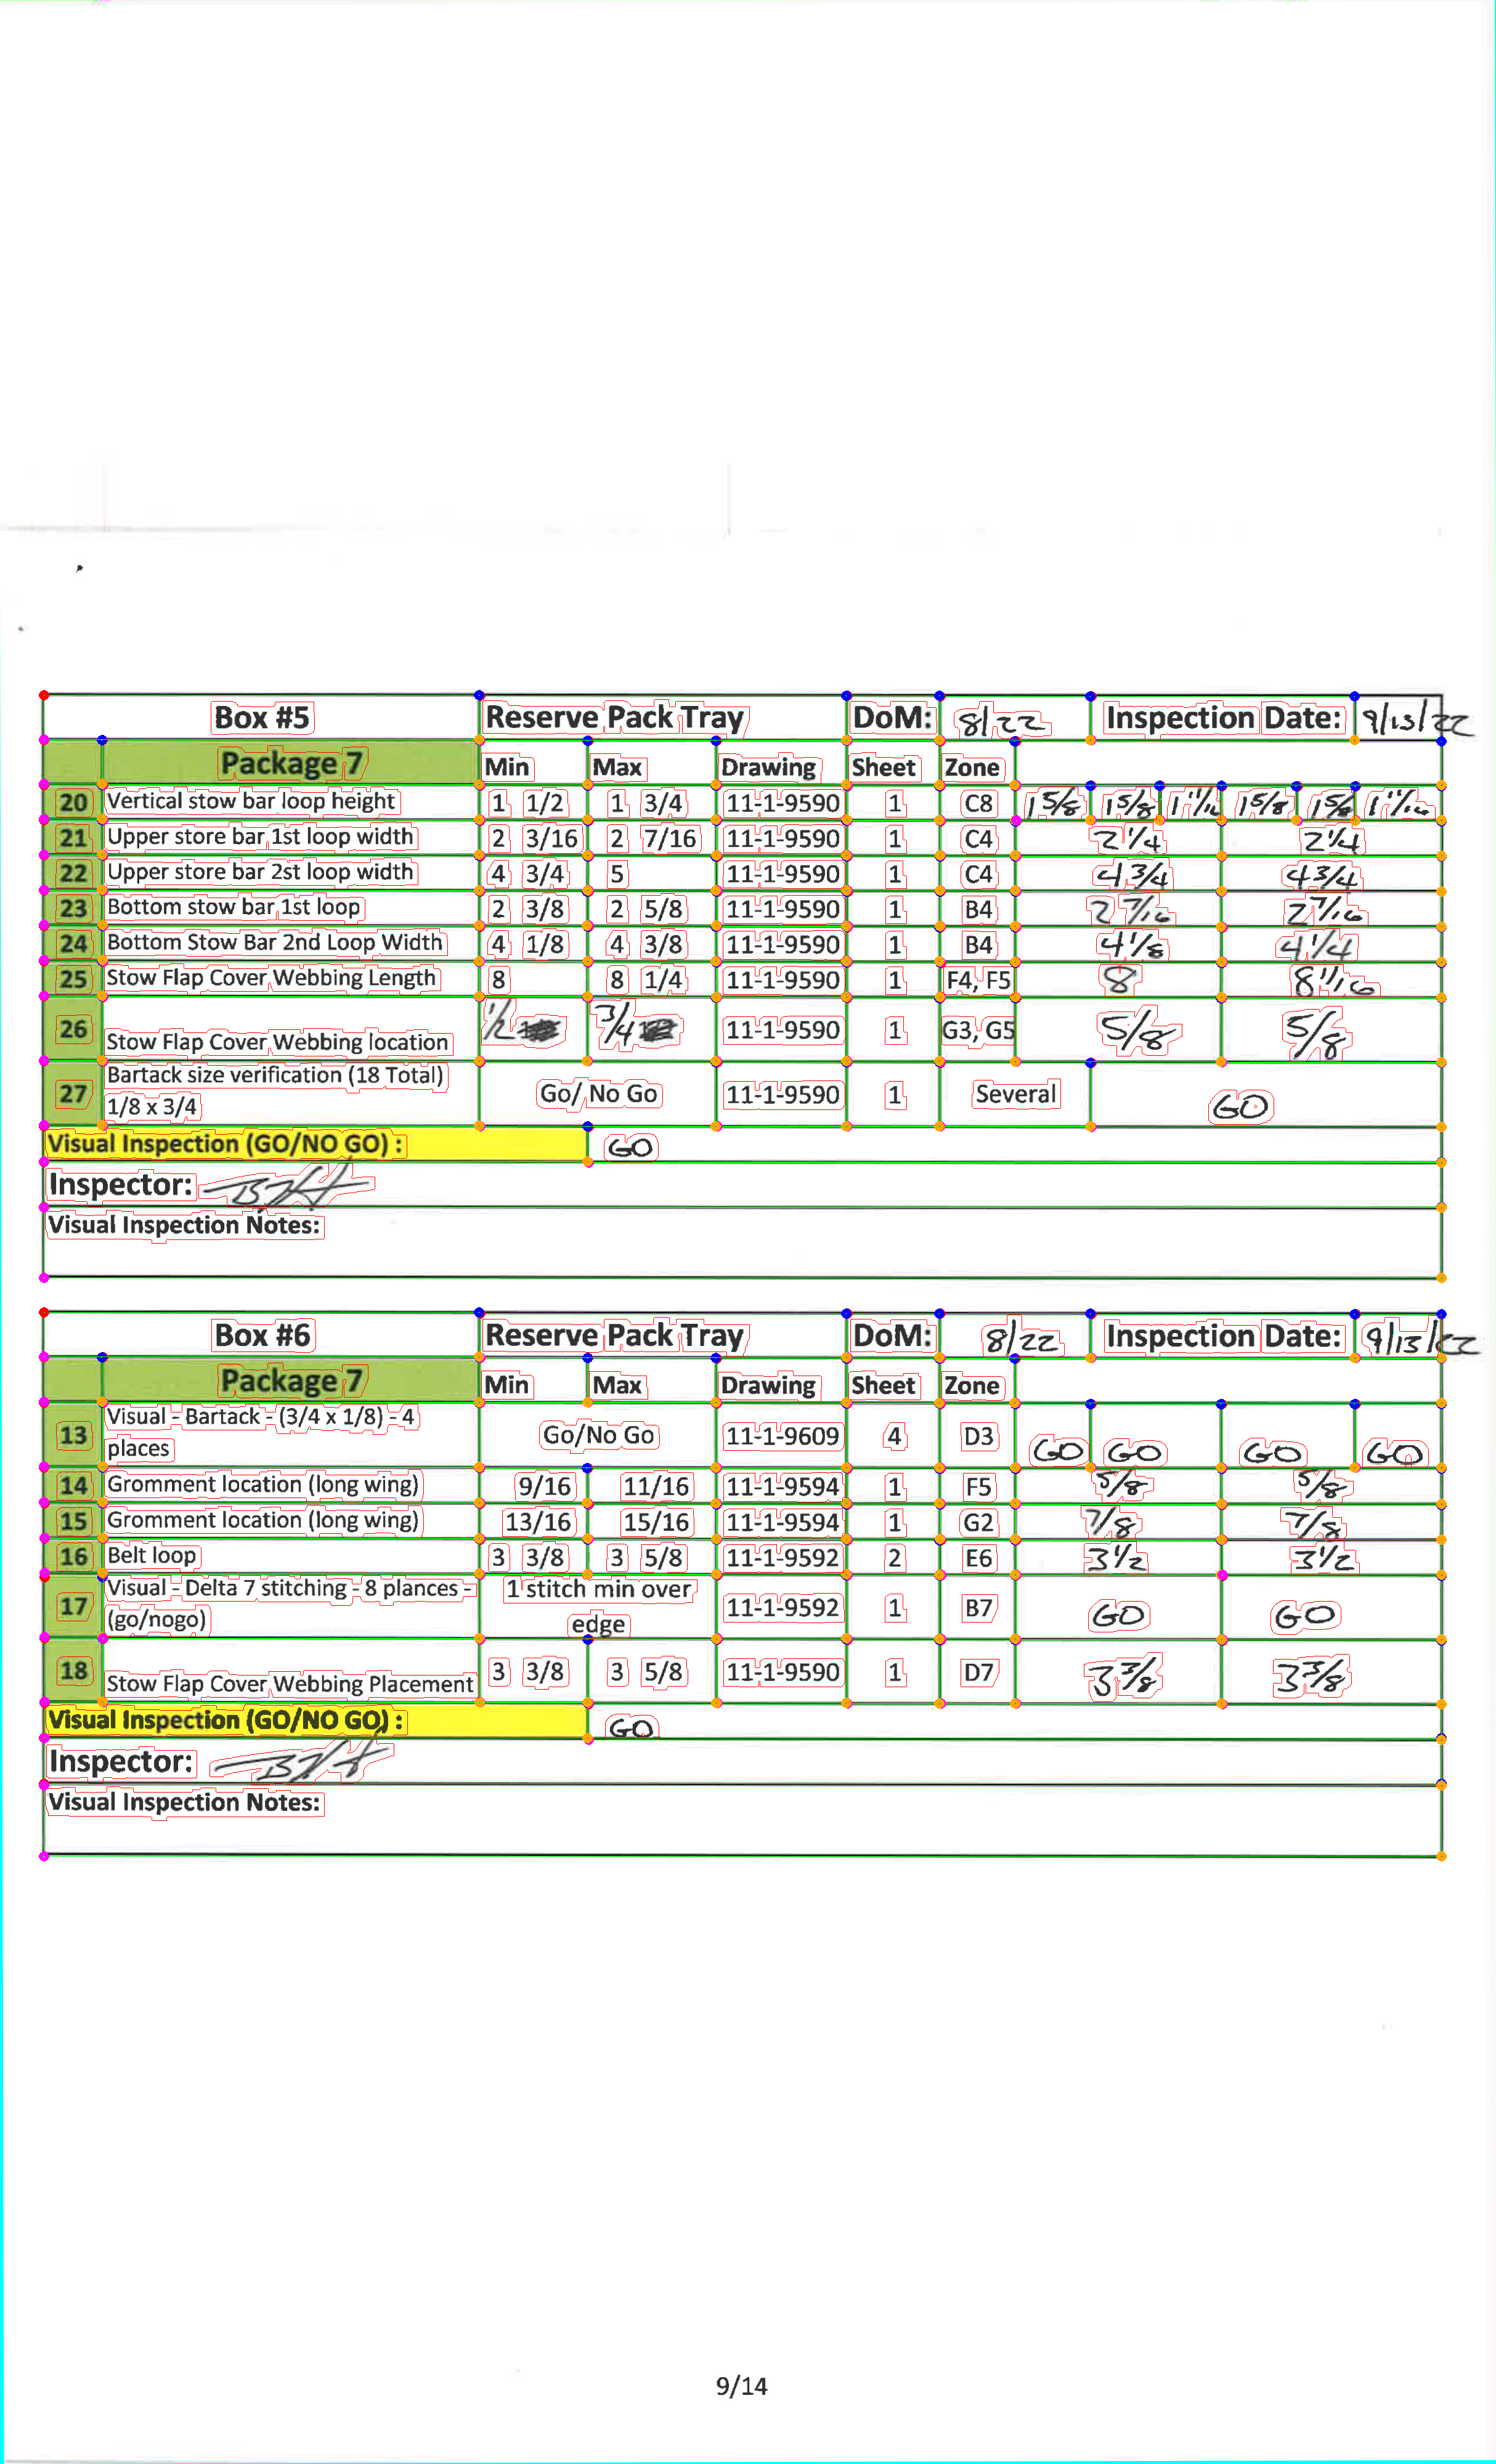 Box #5 Reserve Pack Tray DoM: 8/22 Inspection Date: 9/13/22
Package 7 Min Max Drawing Sheet Zone
20 Vertical stow bar loop height 1 1/2 1 3/4 11-1-9590 1 C8 1 5/8 1 5/8 1 11/16 1 5/8 1 5/8 1 11/16
21 Upper store bar 1st loop width 2 3/16 2 7/16 11-1-9590 1 C4 2 1/4 2 1/4
22 Upper store bar 2st loop width 4 3/4 5 11-1-9590 1 C4 4 3/4 4 3/4
23 Bottom stow bar 1st loop 2 3/8 2 5/8 11-1-9590 1 B4 2 7/16 2 7/16
24 Bottom Stow Bar 2nd Loop Width 4 1/8 4 3/8 11-1-9590 1 B4 4 1/8 4 1/4
25 Stow Flap Cover Webbing Length 8 8 1/4 11-1-9590 1 F4, F5 8 8 1/16
26 Stow Flap Cover Webbing location 1/2 3/4 11-1-9590 1 G3, G5 5/8 5/8
27 Bartack size verification (18 Total) 1/8 x 3/4 Go/ No Go 11-1-9590 1 Several GO
Visual Inspection (GO/NO GO) : GO
Inspector:
Visual Inspection Notes:
Box #6 Reserve Pack Tray DoM: 8/22 Inspection Date: 9/13/22
Package 7 Min Max Drawing Sheet Zone
13 Visual - Bartack - (3/4 x 1/8) - 4 places Go/No Go 11-1-9609 4 D3 GO GO GO GO
14 Gromment location (long wing) 9/16 11/16 11-1-9594 1 F5 5/8 5/8
15 Gromment location (long wing) 13/16 15/16 11-1-9594 1 G2 7/8 7/8
16 Belt loop 3 3/8 3 5/8 11-1-9592 2 E6 3 1/2 3 1/2
17 Visual - Delta 7 stitching - 8 plances - (go/nogo) 1 stitch min over edge 11-1-9592 1 B7 GO GO
18 Stow Flap Cover Webbing Placement 3 3/8 3 5/8 11-1-9590 1 D7 3 3/8 3 3/8
Visual Inspection (GO/NO GO) : GO
Inspector:
Visual Inspection Notes:
9/14